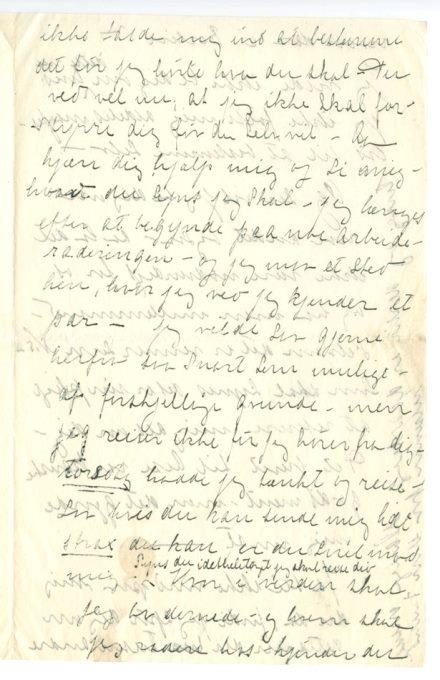 ikke holde mig ind at bestemme
det før jeg hører hva du skal – Der
ved vel nu, at jeg ikke skal for-
styrre dig før du selv vel –
kjæn dig hjælp mig og si mig –
hvad du synes jeg skal – jeg længes
efter at begynde paa mbe arbeide-
raderingen – og jeg mon et sted
hen, hvor jeg ved jeg kjender et
par – jeg vilde saa gjerne
herfra saa snart som mulig –
af forskjellige grunde – men
jeg reiser ikke før jeg hører fra dig –
torsdag havde jeg tænkt og reise –
saa hvis du kan sende mig lidt
strax du kan er du snil mod
mig – Synes du idethele taget jeg skal reise did
hvor i verden skal
jeg bo dernede – og hvem skal
jeg radere hos – kjender du